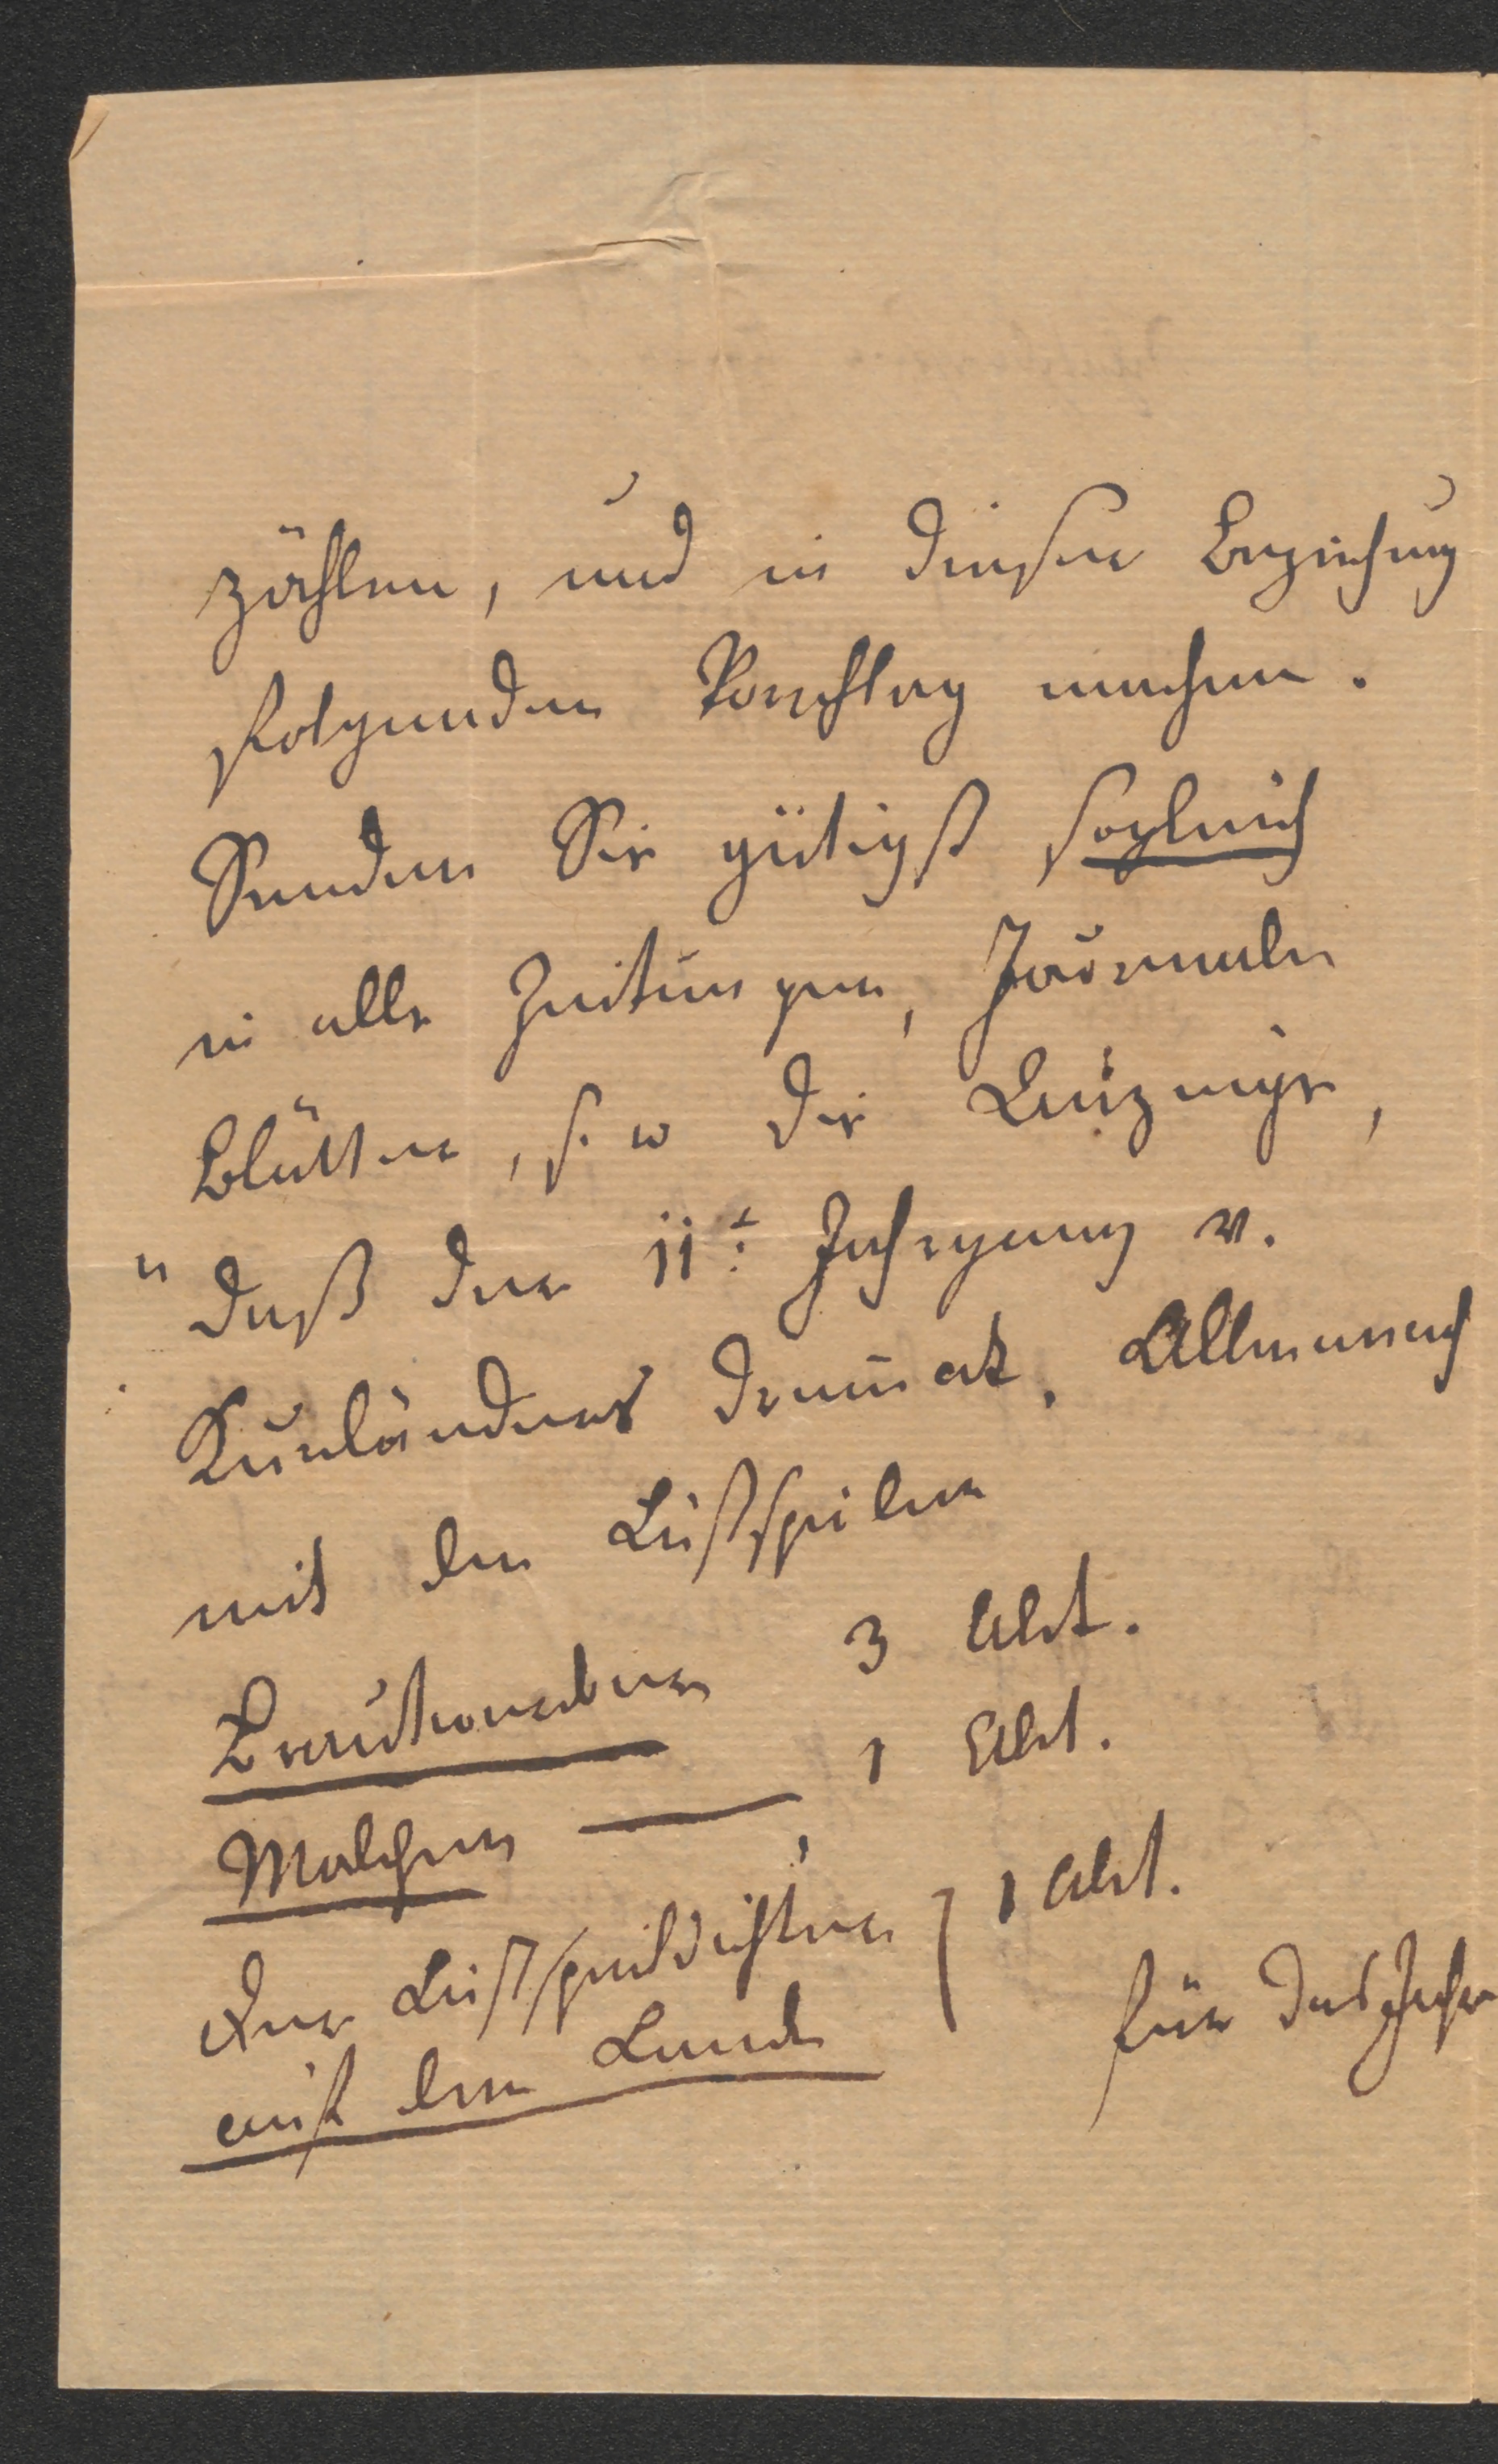 zählen, und in dieser Beziehung
folgenden Vorschlag machen.
Senden Sie gütigst sogleich
in alle Zeitungen, Journale
Blätter, s. w die Anzeige,
"daß der 11t: Jahrgang v.
Kurländers dramat. Allmanach
mit den Lustspielen
3 Akt.
Malchen — 1 Akt.
Der Lustspieldichter } 1 Akt.
auf dem Lande
für das Jahr